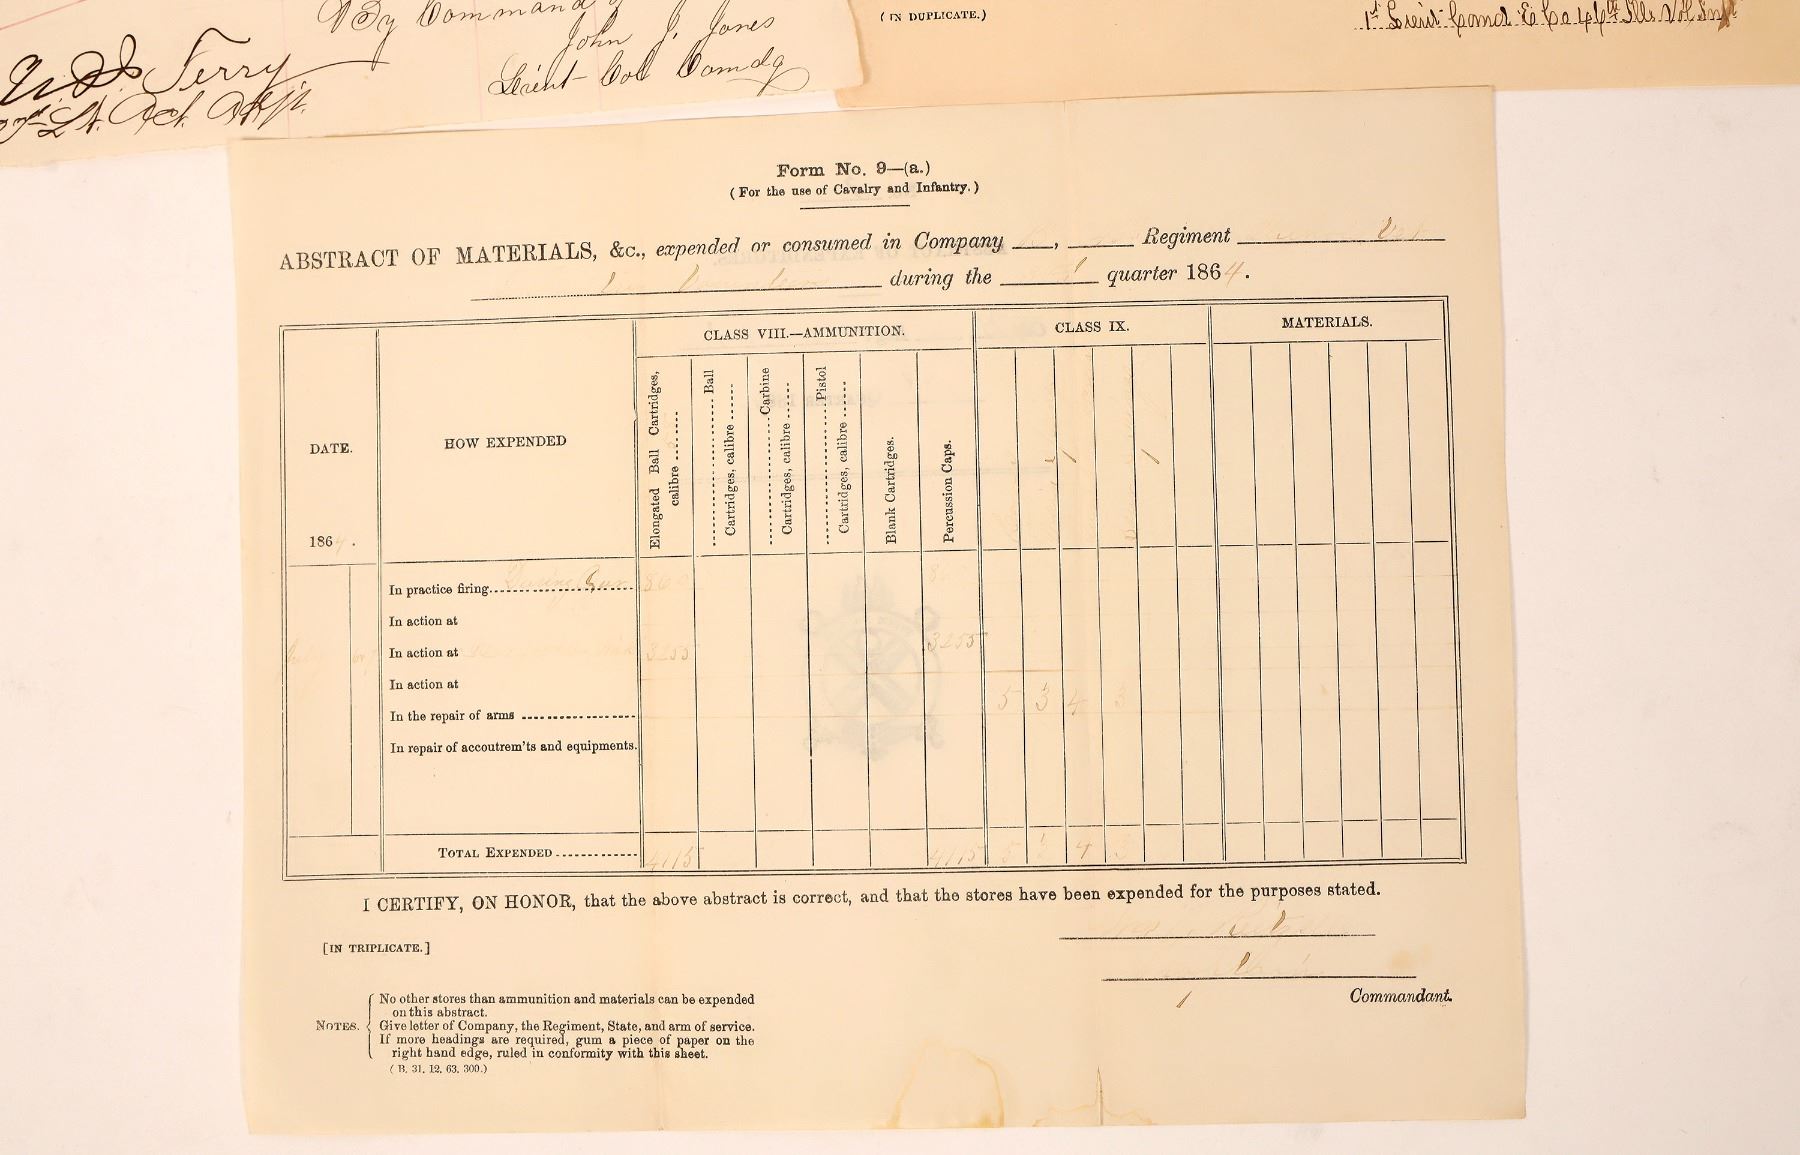 By Command of
John J. Jones
Lieut Col Comdg
Terry
Lt. Act. Adjt.
(IN DUPLICATE.)
1st Lieut Comd E Co 46th Ills Vol Inft
Form No. 9—(a.)
(For the use of Cavalry and Infantry.)
ABSTRACT OF MATERIALS, &c., expended or consumed in Company ___, ___ Regiment ___ Vol
during the ___ quarter 1864.
DATE.
1864.
HOW EXPENDED
CLASS VIII.—AMMUNITION.
CLASS IX.
MATERIALS.
Elongated Ball Cartridges, calibre ......
...... Ball Cartridges, calibre ......
...... Carbine Cartridges, calibre ......
...... Pistol Cartridges, calibre ......
Blank Cartridges.
Percussion Caps.
In practice firing. During Qur 860
In action at
In action at 3255 3255
In action at
In the repair of arms 5 3 4 3
In repair of accoutrem'ts and equipments.
TOTAL EXPENDED 4115 4115 5 3 4 3
I CERTIFY, ON HONOR, that the above abstract is correct, and that the stores have been expended for the purposes stated.
[IN TRIPLICATE.]
Commandant.
NOTES.
No other stores than ammunition and materials can be expended
on this abstract.
Give letter of Company, the Regiment, State, and arm of service.
If more headings are required, gum a piece of paper on the
right hand edge, ruled in conformity with this sheet.
(B. 31. 12. 63. 300.)